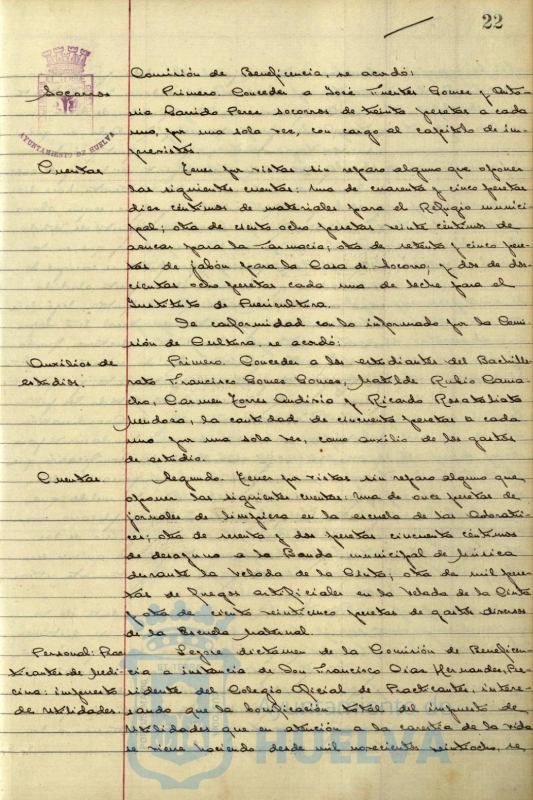 22
Comisión de Beneficencia, se acordó:
Socorros
Primero. Conceder a José Fuentes Gomez y Anto-
nia Garrido Perez socorros de treinta pesetas a cada
uno, por una sola vez, con cargo al capítulo de im-
previstos.
AYUNTAMIENTO DE HUELVA
Cuentas
Tener por vistas sin reparo alguno que oponer
las siguientes cuentas: Una de cuarenta y cinco pesetas
diez céntimos de materiales para el Refugio munici-
pal; otra de ciento ocho pesetas veinte céntimos de
azucar para la Farmacia; otra de setenta y cinco pese-
tas de jabón para la Casa de Socorro, y dos de dos-
cientas ocho pesetas cada una de leche para el
Instituto de Puericultura.
De conformidad con lo informado por la Comi-
sión de Cultura, se acordó:
Auxilios de
estudios.
Primero. Conceder a los estudiantes del Bachille-
rato Francisco Gomez Gomez, Matilde Rubio Cama-
cho, Carmen Torres y Ricardo
Mendoza, la cantidad de cincuenta pesetas a cada
uno por una sola vez, como auxilio de los gastos
de estudio.
Cuentas
Segundo. Tener por vistas sin reparo alguno que
oponer las siguientes cuentas: Una de once pesetas de
jornales de limpieza en la escuela de las Adoratri-
ces; otra de sesenta y dos pesetas cincuenta céntimos
de desayuno a la Banda municipal de Música
durante la Velada de la Cinta; otra de mil pese-
tas de fuegos artificiales en la Velada de la Cinta
y otra de ciento veinticinco pesetas de gastos diversos
de la Escuela Maternal.
Personal: Prac-
ticantes de Medi-
cina: impuesto
de Utilidades.
Leyose dictamen de la Comisión de Beneficen-
cia a instancia de Don Francisco Diaz Hernandez, Pre-
sidente del Colegio Oficial de Practicantes, intere-
sando que la bonificación total del impuesto de
Utilidades que en atención a la carestía de la vida
se viene haciendo desde mil novecientos veintiocho, se
HUELVA